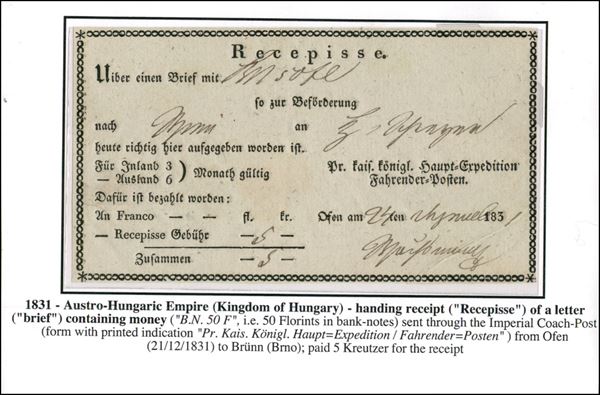 Recepisse.
Uiber einen Brief mit
so zur Beförderung
nach an
heute richtig hier aufgegeben worden ist.
Für Inland 3
— Ausland 6 ) Monath gültig
Pr. kais. königl. Haupt=Expedition
Fahrender=Posten.
Dafür ist bezahlt worden:
An Franco — — fl. kr.
Ofen am 21ten 1831
— Recepisse Gebühr — 5 —
Zusammen — 5 —
1831 - Austro-Hungaric Empire (Kingdom of Hungary) - handing receipt ("Recepisse") of a letter
("brief") containing money ("B.N. 50 F", i.e. 50 Florints in bank-notes) sent through the Imperial Coach-Post
(form with printed indication "Pr. Kais. Königl. Haupt=Expedition / Fahrender=Posten" ) from Ofen
(21/12/1831) to Brünn (Brno); paid 5 Kreutzer for the receipt